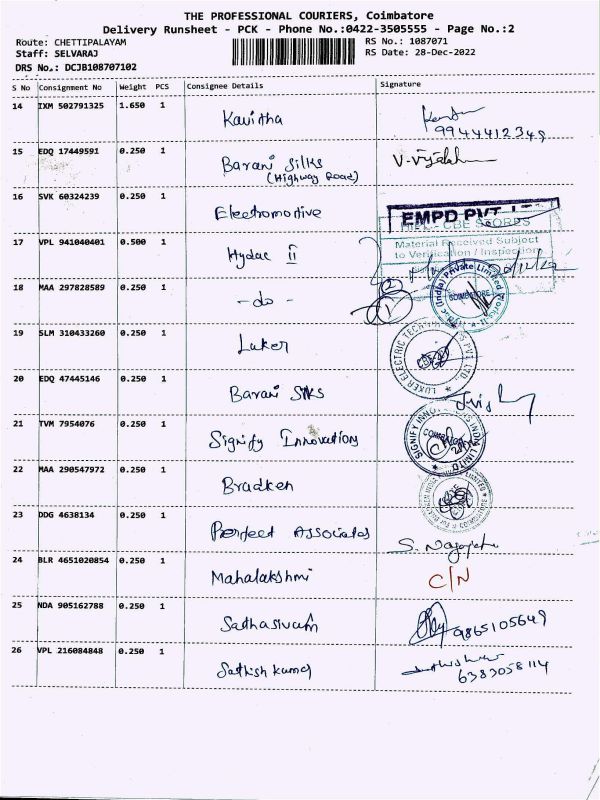 THE PROFESSIONAL COURIERS, Coimbatore
Delivery Runsheet - PCK - Phone No.:0422-3505555 - Page No.:2
Route: CHETTIPALAYAM RS No.: 1087071
Staff: SELVARAJ RS Date: 28-Dec-2022
DRS No.: DCJB108707102
S No Consignment No Weight PCS Consignee Details Signature
14 IXM 502791325 1.650 1 Kavitha
9944412349
15 EDQ 17449591 0.250 1 Barani Silks
(Highway Road)
16 SVK 60324239 0.250 1 Electromotive
EMPD PVT
Material Received Subject
to Verification / Inspection
17 VPL 941040401 0.500 1 Hydac II
18 MAA 297828589 0.250 1 - do -
(India) Private Limited
COIMBATORE
19 SLM 310433260 0.250 1 Luker
LUKER ELECTRIC TECH PVT LTD.
CBE
20 EDQ 47445146 0.250 1 Barani Silks
21 TVM 7954076 0.250 1 Signify Innovation
SIGNIFY INNOVATIONS INDIA LIMITED
COIMBATORE
22 MAA 290547972 0.250 1 Bradken
23 DDG 4638134 0.250 1 Perfect Associates
24 BLR 4651020854 0.250 1 Mahalakshmi C/N
25 NDA 905162788 0.250 1 Sathasivam 9865105649
26 VPL 216084848 0.250 1 Sathish kumar
6383058114